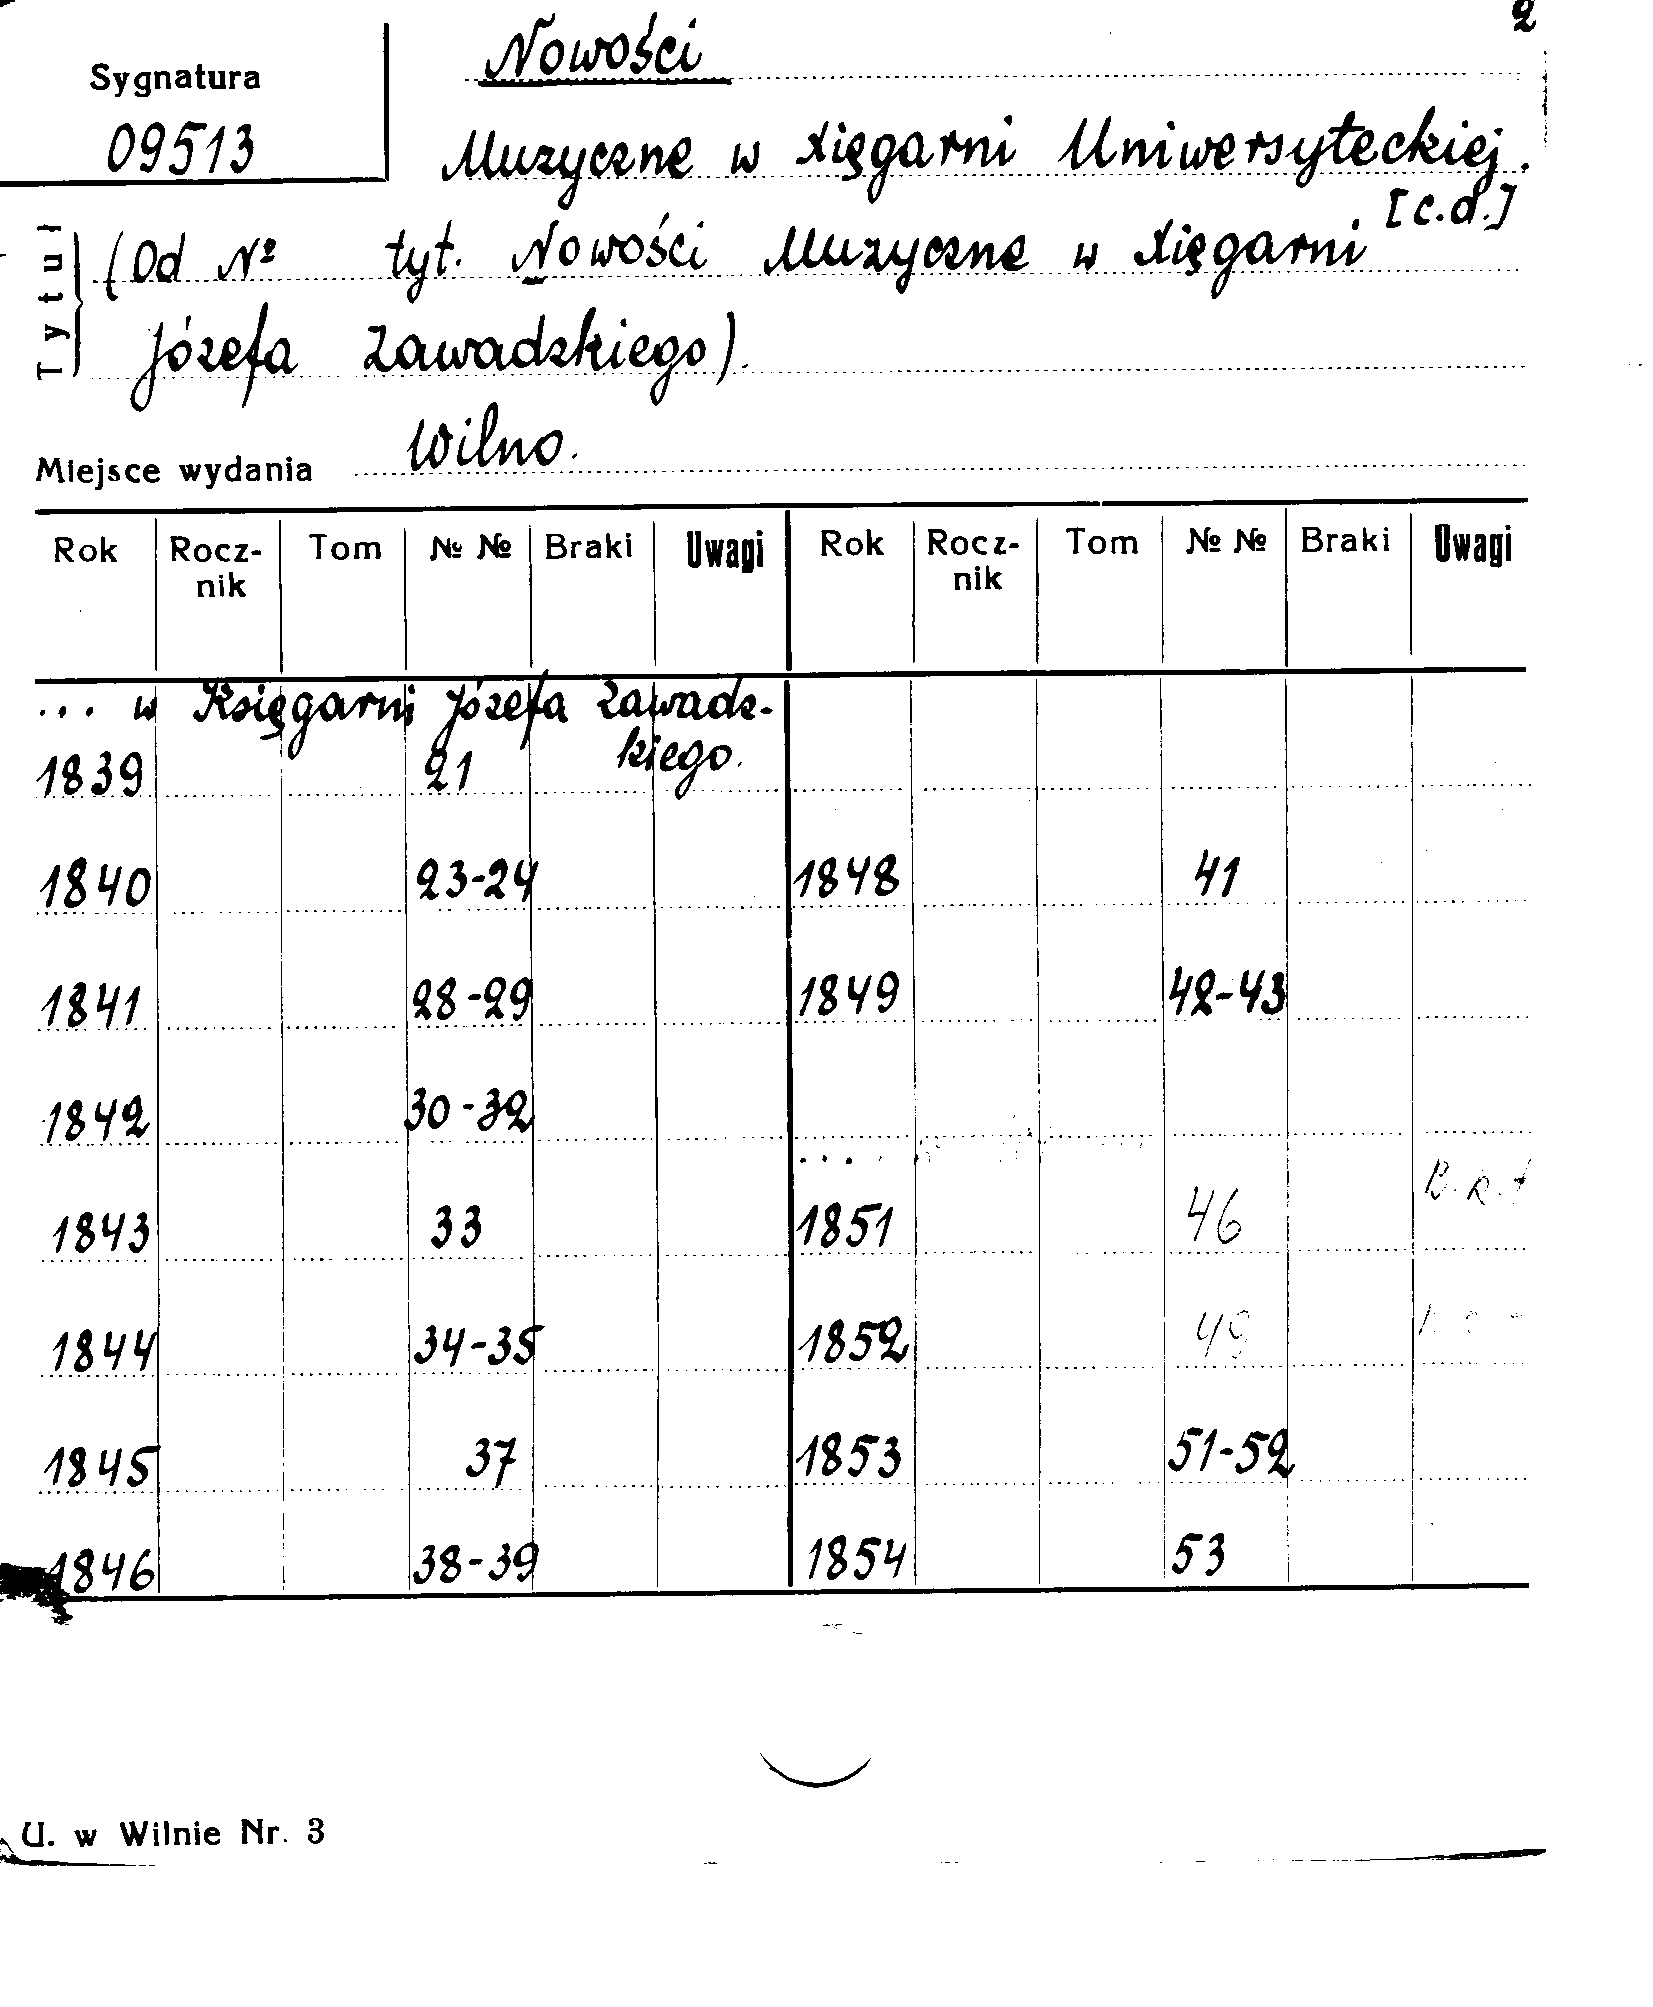 2
Nowości
Sygnatura
09513
Muzyczne w Xięgarni Uniwersyteckiej.
[c.d.]
Tytuł
(Od № tyt. Nowości Muzyczne w Xięgarni
Józefa Zawadzkiego).
Miejsce wydania Wilno.
Rok Rocz-nik Tom № № Braki Uwagi Rok Rocz-nik Tom № № Braki Uwagi
... w Księgarni Józefa Zawadz-
kiego.
1839 21
1840 23-24 1848 41
1841 28-29 1849 42-43
1842 30-32
....
1843 33 1851 46
1844 34-35 1852 49
1845 37 1853 51-52
1846 38-39 1854 53
U. w Wilnie Nr. 3